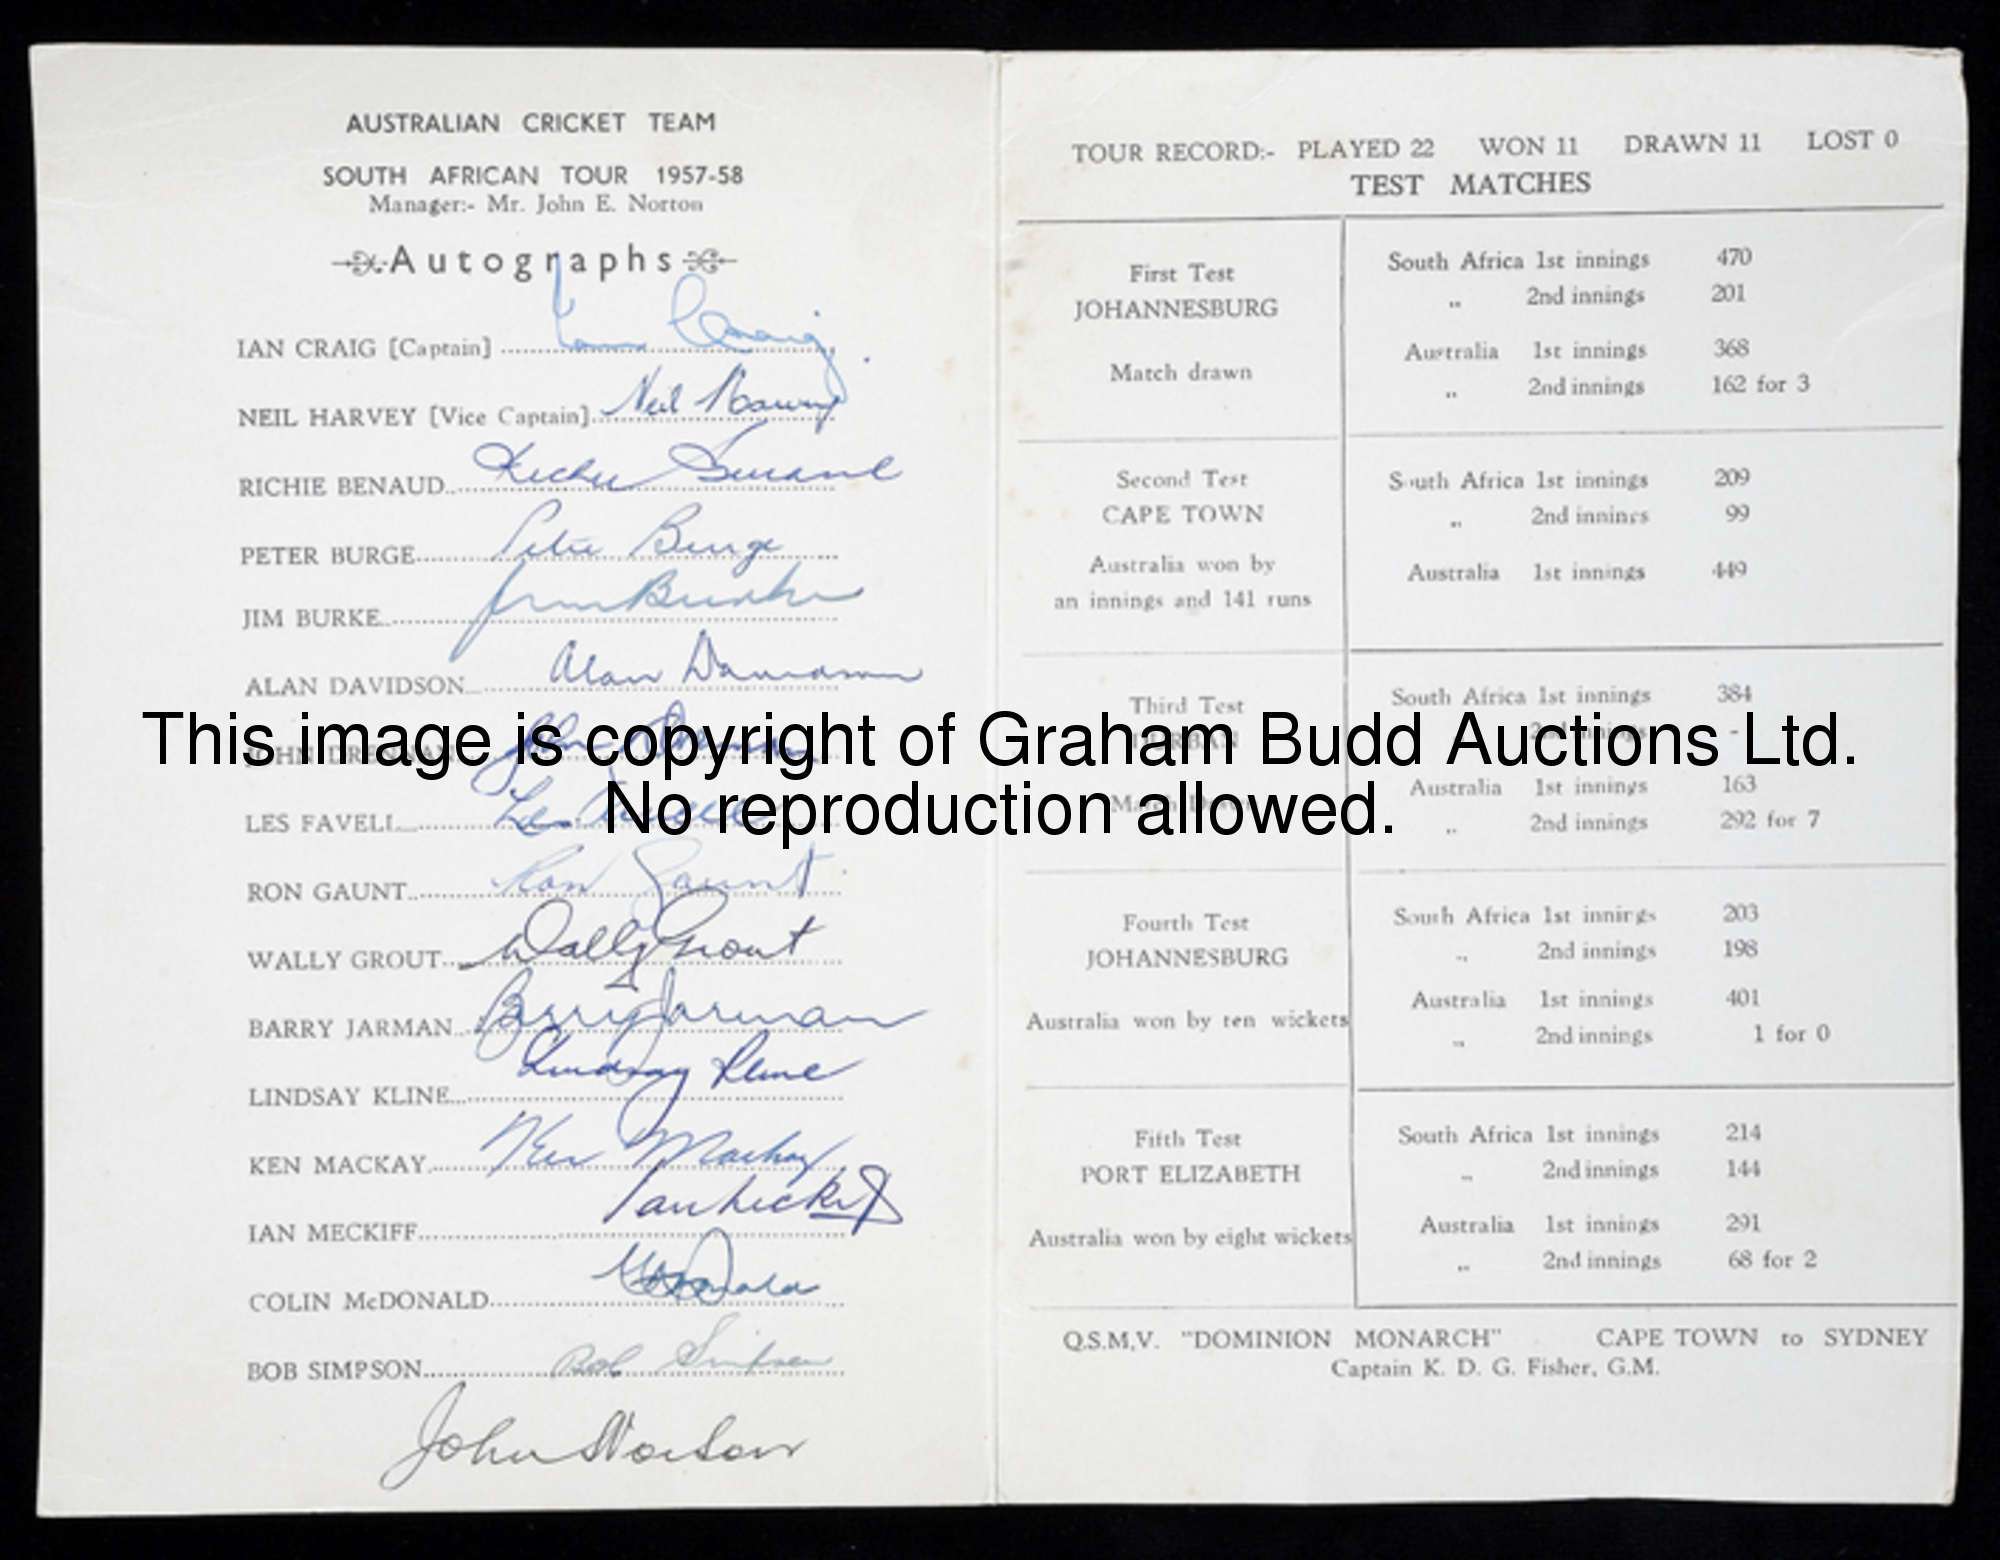 AUSTRALIAN CRICKET TEAM
SOUTH AFRICAN TOUR 1957-58
Manager:- Mr. John E. Norton
Autographs
IAN CRAIG [Captain] Ian Craig
NEIL HARVEY [Vice Captain] Neil Harvey
RICHIE BENAUD Richie Benaud
PETER BURGE Peter Burge
JIM BURKE Jim Burke
ALAN DAVIDSON Alan Davidson
JOHN DRENNAN John Drennan
LES FAVELL Les Favell
RON GAUNT Ron Gaunt
WALLY GROUT Wally Grout
BARRY JARMAN Barry Jarman
LINDSAY KLINE Lindsay Kline
KEN MACKAY Ken Mackay
IAN MECKIFF Ian Meckiff
COLIN McDONALD McDonald
BOB SIMPSON Bob Simpson
John Norton
TOUR RECORD:- PLAYED 22 WON 11 DRAWN 11 LOST 0
TEST MATCHES
First Test
JOHANNESBURG
Match drawn
South Africa 1st innings 470
„ 2nd innings 201
Australia 1st innings 368
„ 2nd innings 162 for 3
Second Test
CAPE TOWN
Australia won by
an innings and 141 runs
South Africa 1st innings 209
„ 2nd innings 99
Australia 1st innings 449
Third Test
DURBAN
Match Drawn
South Africa 1st innings 384
2nd innings -
Australia 1st innings 163
„ 2nd innings 292 for 7
Fourth Test
JOHANNESBURG
Australia won by ten wickets
South Africa 1st innings 203
„ 2nd innings 198
Australia 1st innings 401
„ 2nd innings 1 for 0
Fifth Test
PORT ELIZABETH
Australia won by eight wickets
South Africa 1st innings 214
„ 2nd innings 144
Australia 1st innings 291
„ 2nd innings 68 for 2
Q.S.M.V. "DOMINION MONARCH" CAPE TOWN to SYDNEY
Captain K. D. G. Fisher, G.M.
This image is copyright of Graham Budd Auctions Ltd.
No reproduction allowed.